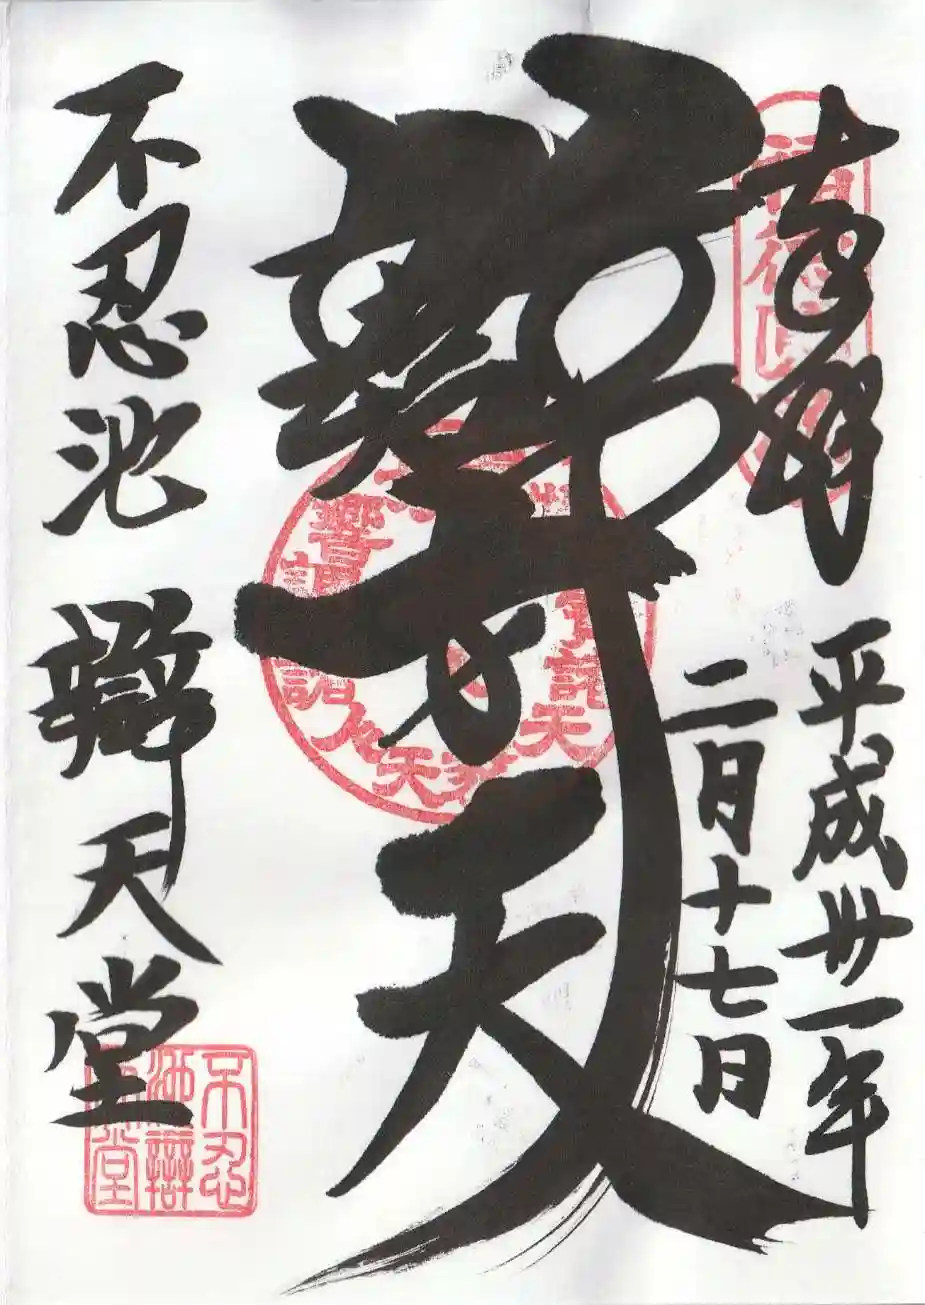 奉拝
平成卅一年
二月十七日
辯才天
不忍池 辯天堂
不忍
池辯
天堂